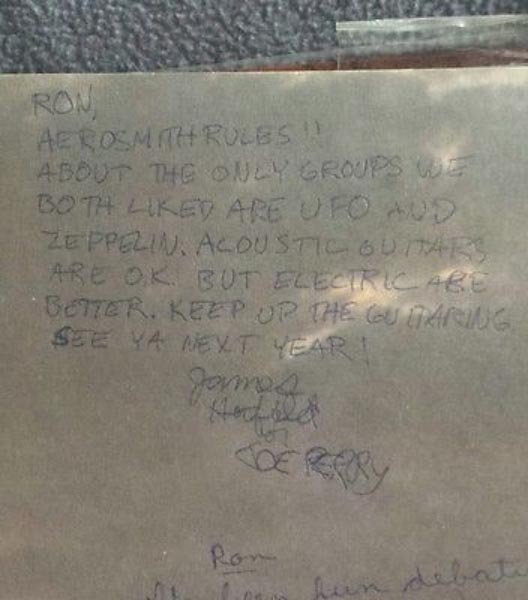 RON,
AEROSMITH RULES!!
ABOUT THE ONLY GROUPS WE
BOTH LIKED ARE UFO AND
ZEPPELIN. ACOUSTIC GUITARS
ARE O.K. BUT ELECTRIC ARE
BETTER. KEEP UP THE GUITARING.
SEE YA NEXT YEAR!
James
Hetfield
or
JOE PERRY
Ron
been fun